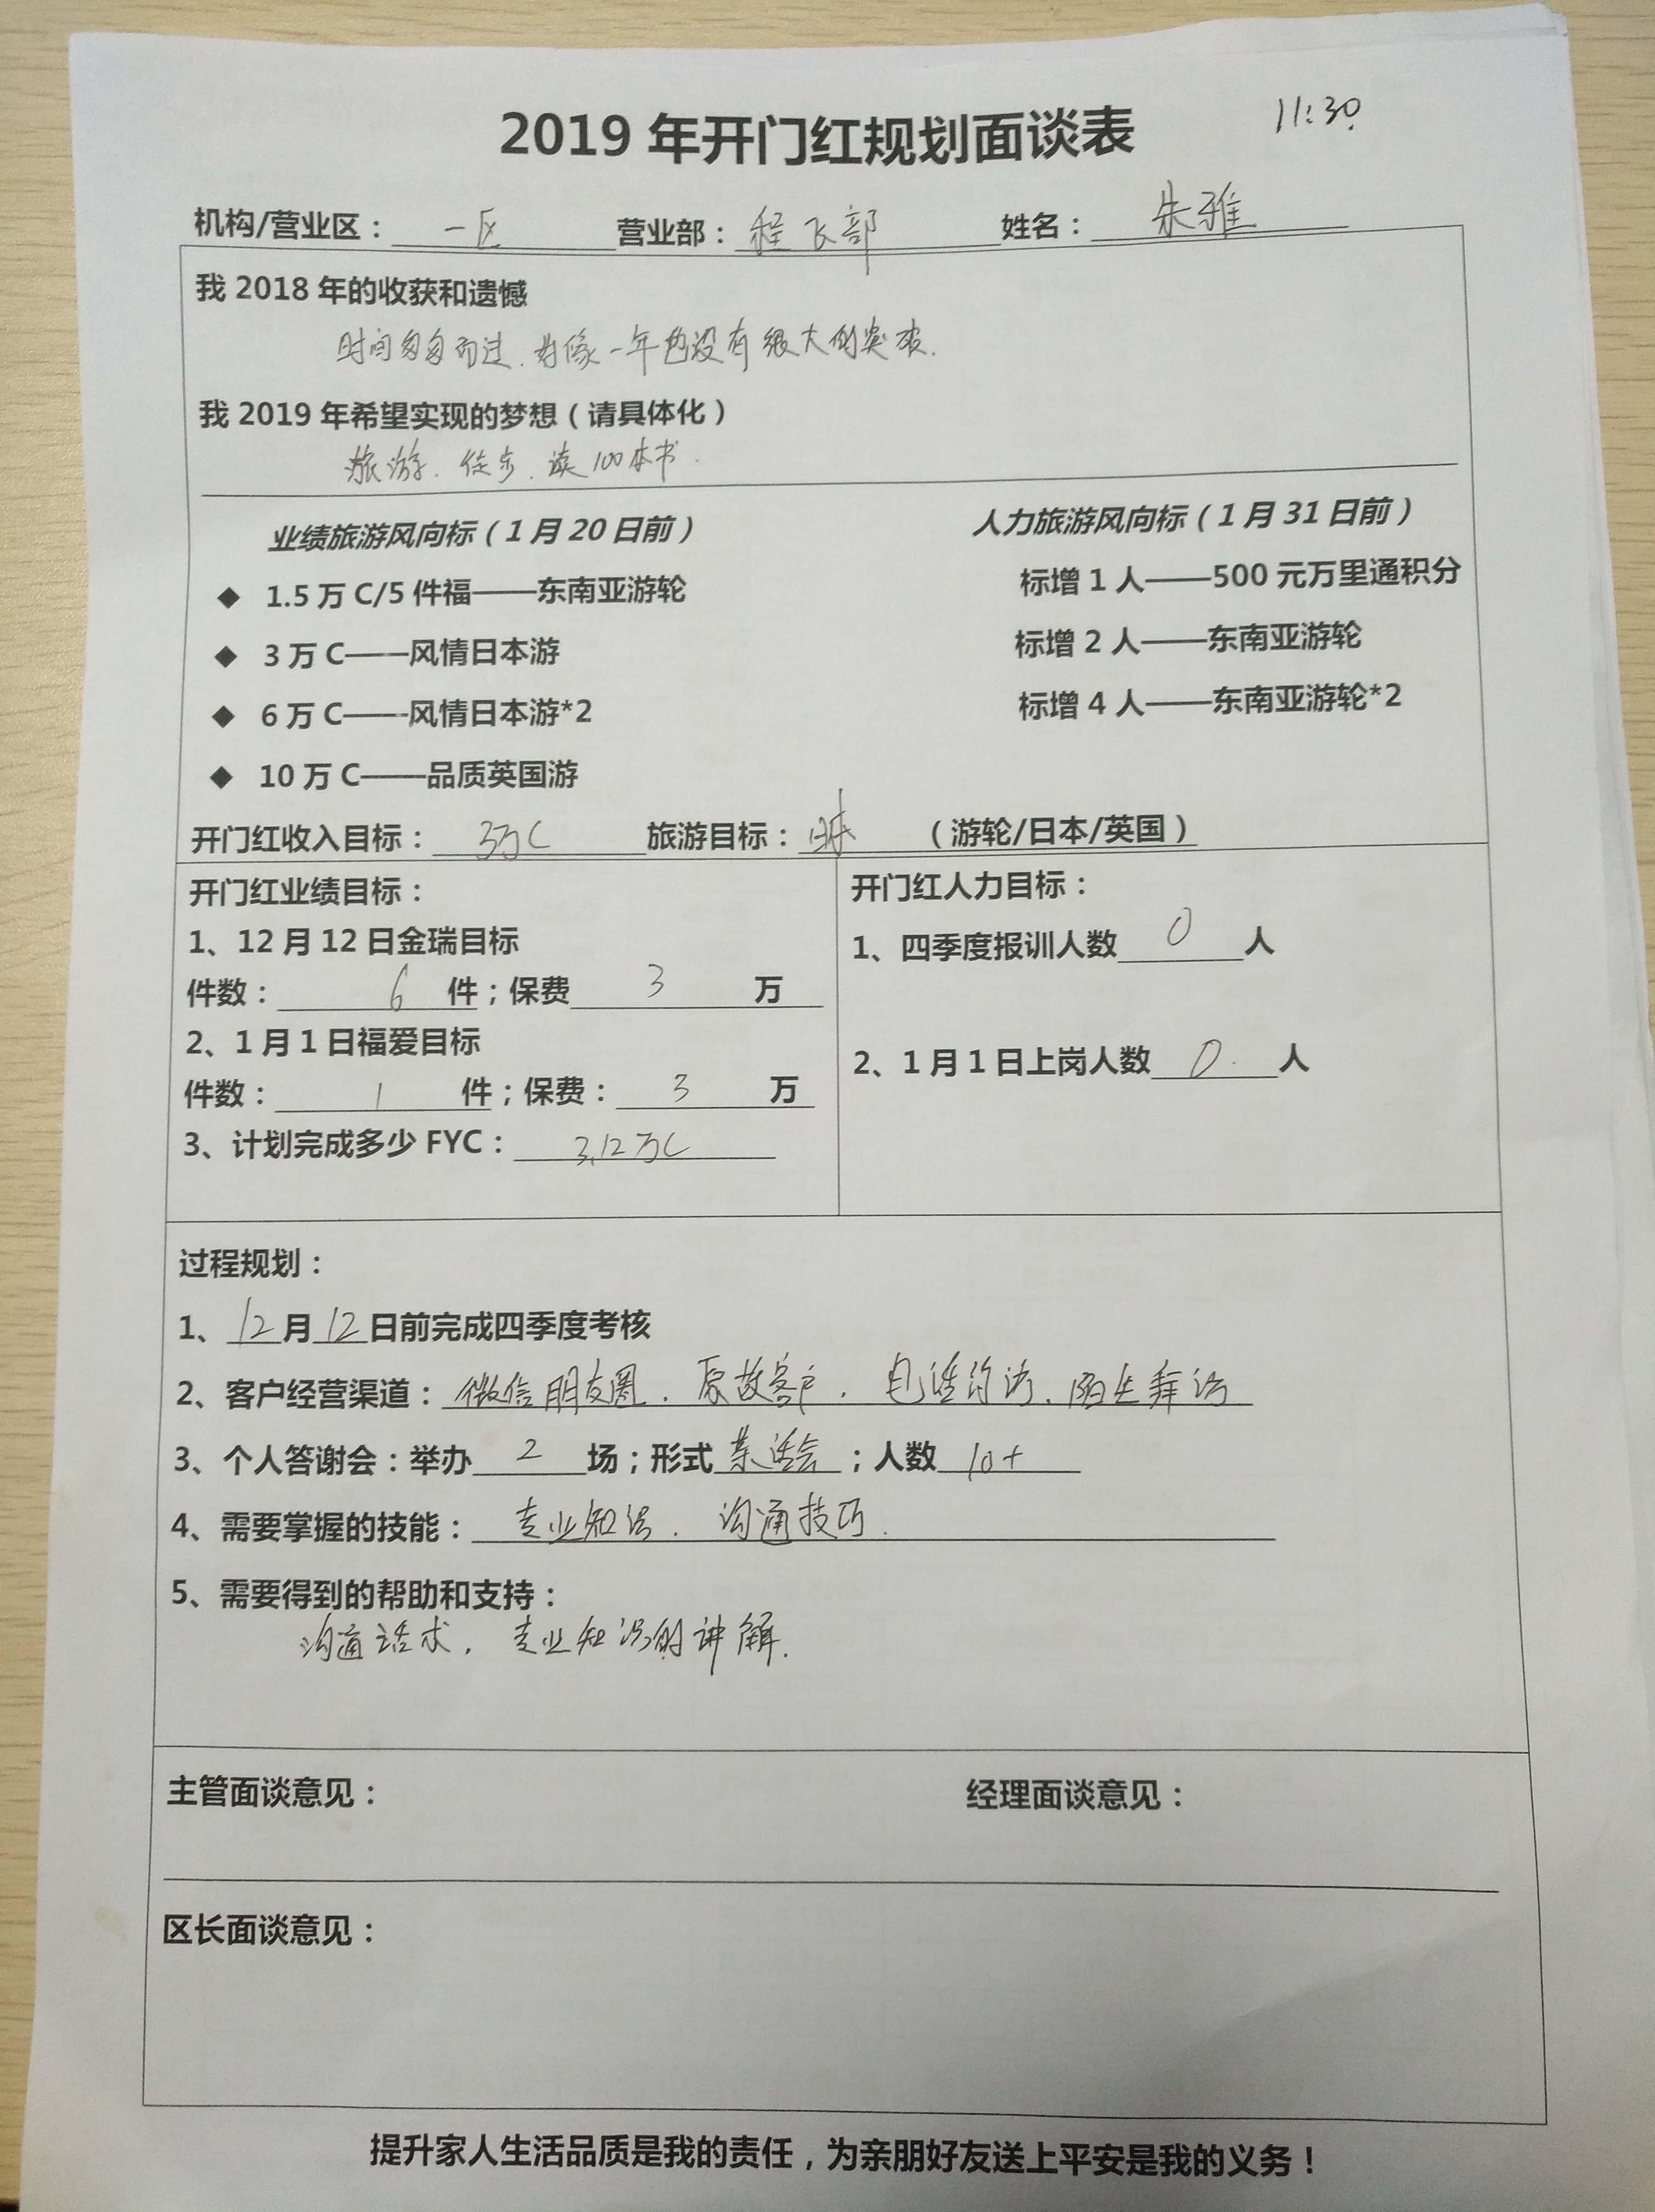 11:30
2019 年开门红规划面谈表
机构/营业区： 一区 营业部： 程飞部 姓名： 朱雅
我 2018 年的收获和遗憾
时间匆匆而过.好像一年也没有很大的突破.
我 2019 年希望实现的梦想（请具体化）
旅游.徒步.读100本书.
业绩旅游风向标（1 月 20 日前） 人力旅游风向标（1 月 31 日前）
◆ 1.5 万 C/5 件福——东南亚游轮 标增 1 人——500 元万里通积分
◆ 3 万 C——风情日本游 标增 2 人——东南亚游轮
◆ 6 万 C——风情日本游*2 标增 4 人——东南亚游轮*2
◆ 10 万 C——品质英国游
开门红收入目标： 3万C 旅游目标： 日本 （游轮/日本/英国）
开门红业绩目标： 开门红人力目标：
1、12 月 12 日金瑞目标 1、四季度报训人数 0 人
件数： 6 件；保费 3 万
2、1 月 1 日福爱目标 2、1 月 1 日上岗人数 0. 人
件数： 1 件；保费： 3 万
3、计划完成多少 FYC： 3.12万C
过程规划：
1、12月12日前完成四季度考核
2、客户经营渠道：微信朋友圈.原故客户.电话约访.陌生拜访
3、个人答谢会：举办 2 场；形式 茶话会；人数 10+
4、需要掌握的技能： 专业知识.沟通技巧.
5、需要得到的帮助和支持：
沟通话术.专业知识的讲解.
主管面谈意见： 经理面谈意见：
区长面谈意见：
提升家人生活品质是我的责任，为亲朋好友送上平安是我的义务！